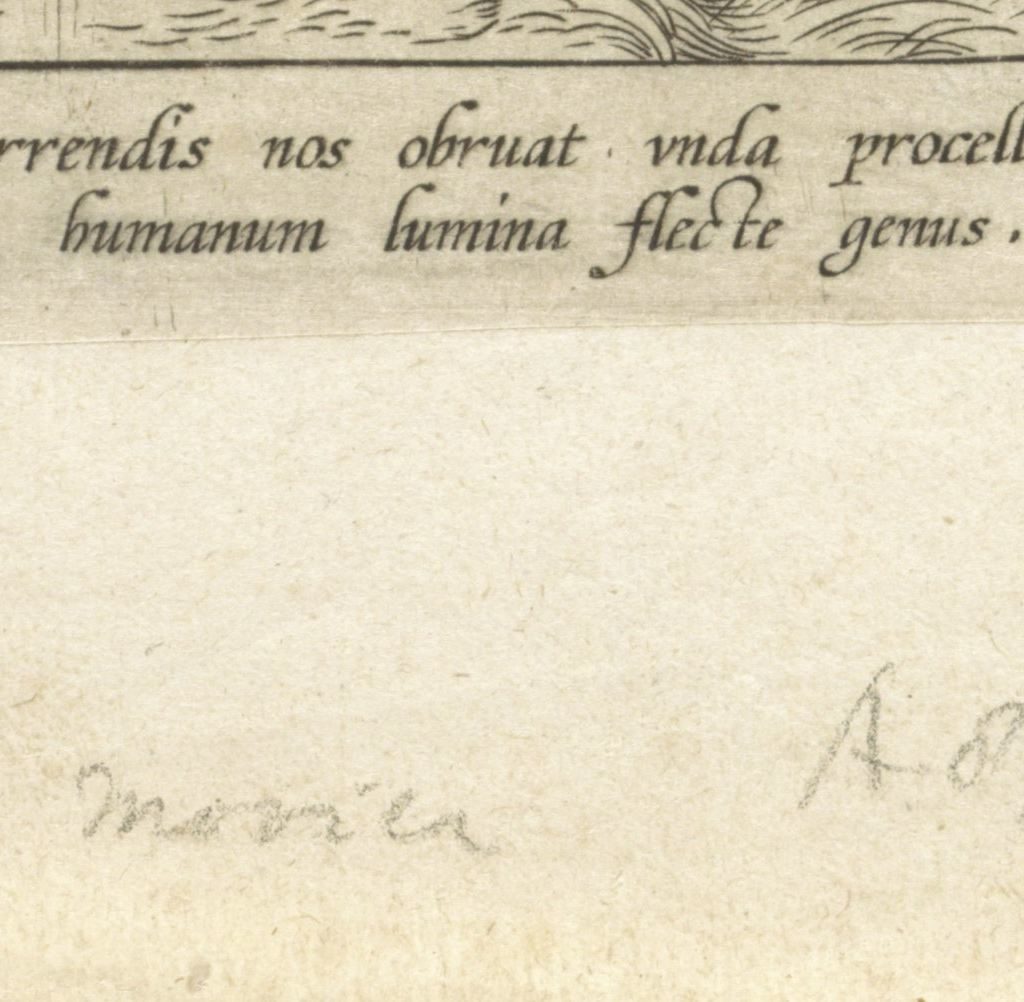 rrendis nos obruat vnda procell
humanum lumina flecte genus.
monica
A 8